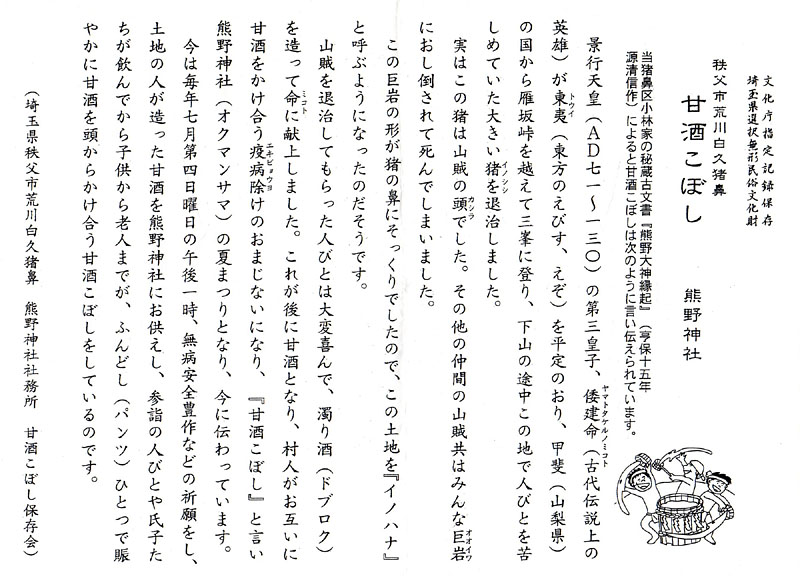 文化庁指定記録保存
埼玉県選択無形民俗文化財
秩父市荒川白久猪鼻
甘酒こぼし　熊野神社
当猪鼻区小林家の秘蔵古文書『熊野大神縁起』（亨保十五年
源清信作）によると甘酒こぼしは次のように言い伝えられています。
景行天皇（AD七一〜一三〇）の第三皇子、倭建命（古代伝説上の
ヤマトタケルノミコト
英雄）が東夷（東方のえびす、えぞ）を平定のおり、甲斐（山梨県）
トウイ
の国から雁坂峠を越えて三峯に登り、下山の途中この地で人びとを苦
しめていた大きい猪を退治しました。
イノシシ
実はこの猪は山賊の頭でした。その他の仲間の山賊共はみんな巨岩
カシラ
オオイワ
におし倒されて死んでしまいました。
この巨岩の形が猪の鼻にそっくりでしたので、この土地を『イノハナ』
と呼ぶようになったのだそうです。
山賊を退治してもらった人びとは大変喜んで、濁り酒（ドブロク）
を造って命に献上しました。これが後に甘酒となり、村人がお互いに
ミコト
甘酒をかけ合う疫病除けのおまじないになり、『甘酒こぼし』と言い
エキビョウヨ
熊野神社（オクマンサマ）の夏まつりとなり、今に伝わっています。
今は毎年七月第四日曜日の午後一時、無病安全豊作などの祈願をし、
土地の人が造った甘酒を熊野神社にお供えし、参詣の人びとや氏子た
ちが飲んでから子供から老人までが、ふんどし（パンツ）ひとつで賑
やかに甘酒を頭からかけ合う甘酒こぼしをしているのです。
（埼玉県秩父市荒川白久猪鼻　熊野神社社務所　甘酒こぼし保存会）